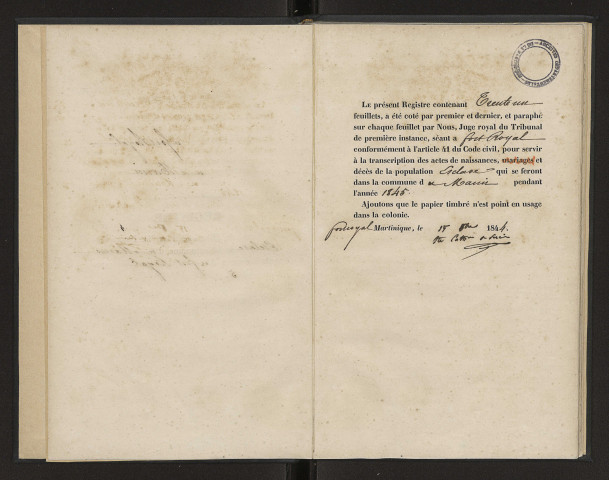 Le présent Registre contenant Trente un
feuillets, a été coté par premier et dernier, et paraphé
sur chaque feuillet par Nous, Juge royal du Tribunal
de première instance, séant a fort Royal
conformément à l'article 41 du Code civil, pour servir
à la transcription des actes de naissances, mariages et
décès de la population Esclave qui se feront
dans la commune d u Marin pendant
l'année 1845.
Ajoutons que le papier timbré n'est point en usage
dans la colonie.
fortroyal Martinique, le 18 1844.